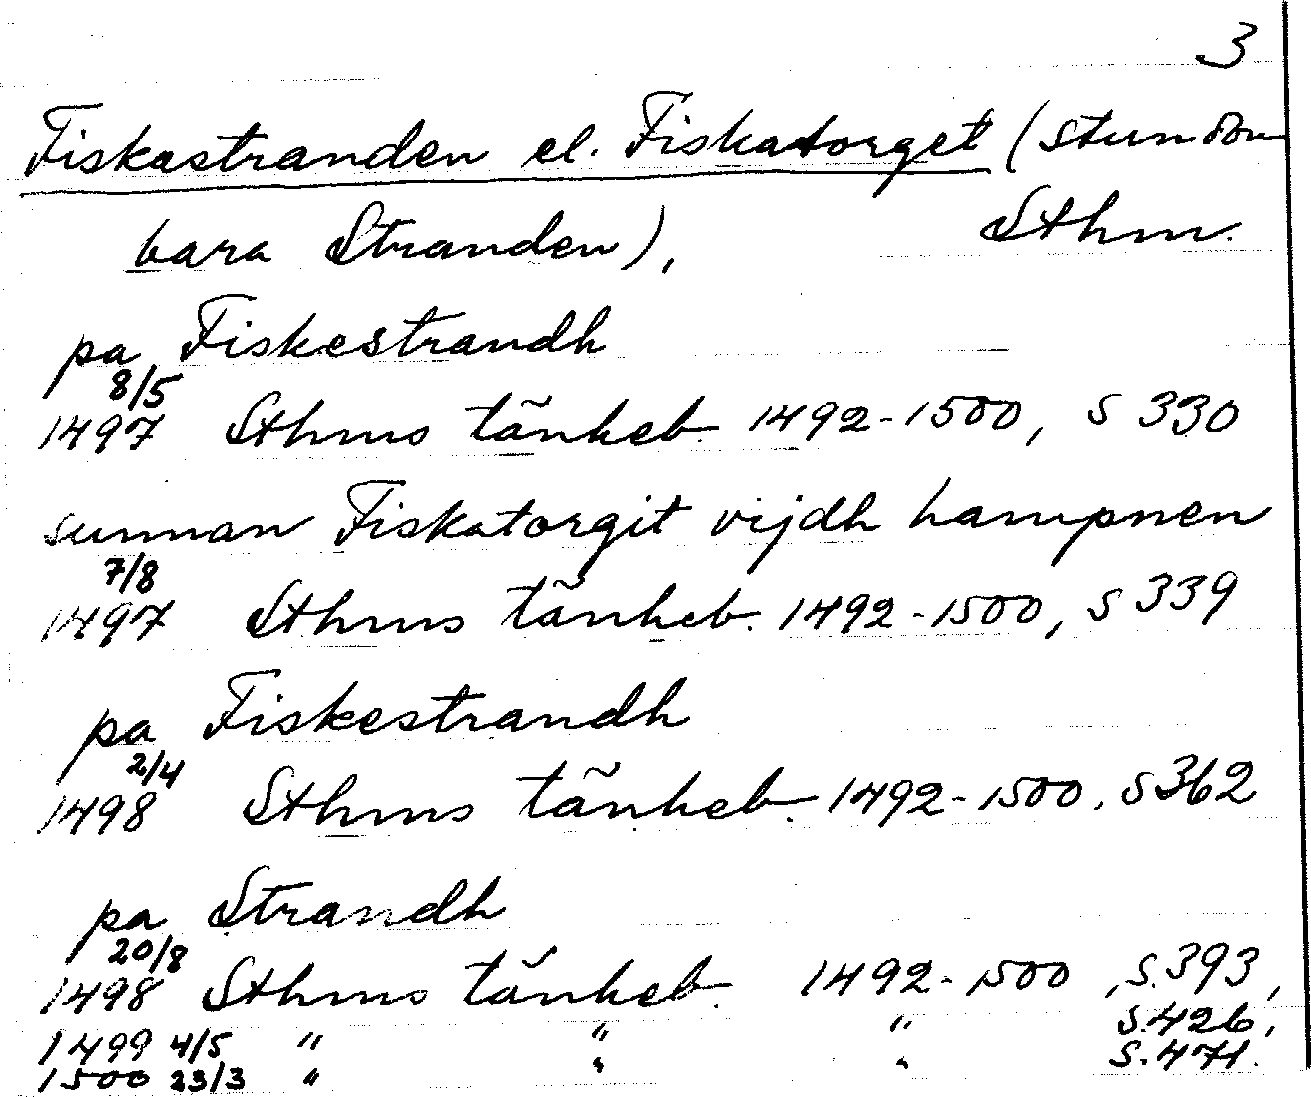 3
Fiskastranden el. Fiskatorget (stundom
bara Stranden), Sthm.
pa Fiskestrandh
8/5
1497 Sthms tänkeb. 1492-1500, s 330
sunnan Fiskatorgit vijdh hampnen
7/8
1497 Sthms tänkeb. 1492-1500, s 339
pa Fiskestrandh
2/4
1498 Sthms tänkeb. 1492-1500, s 362
pa Strandh
20/8
1498 Sthms tänkeb. 1492-1500, s.393,
1499 4/5 " " " s.426,
1500 23/3 " " " s.471.